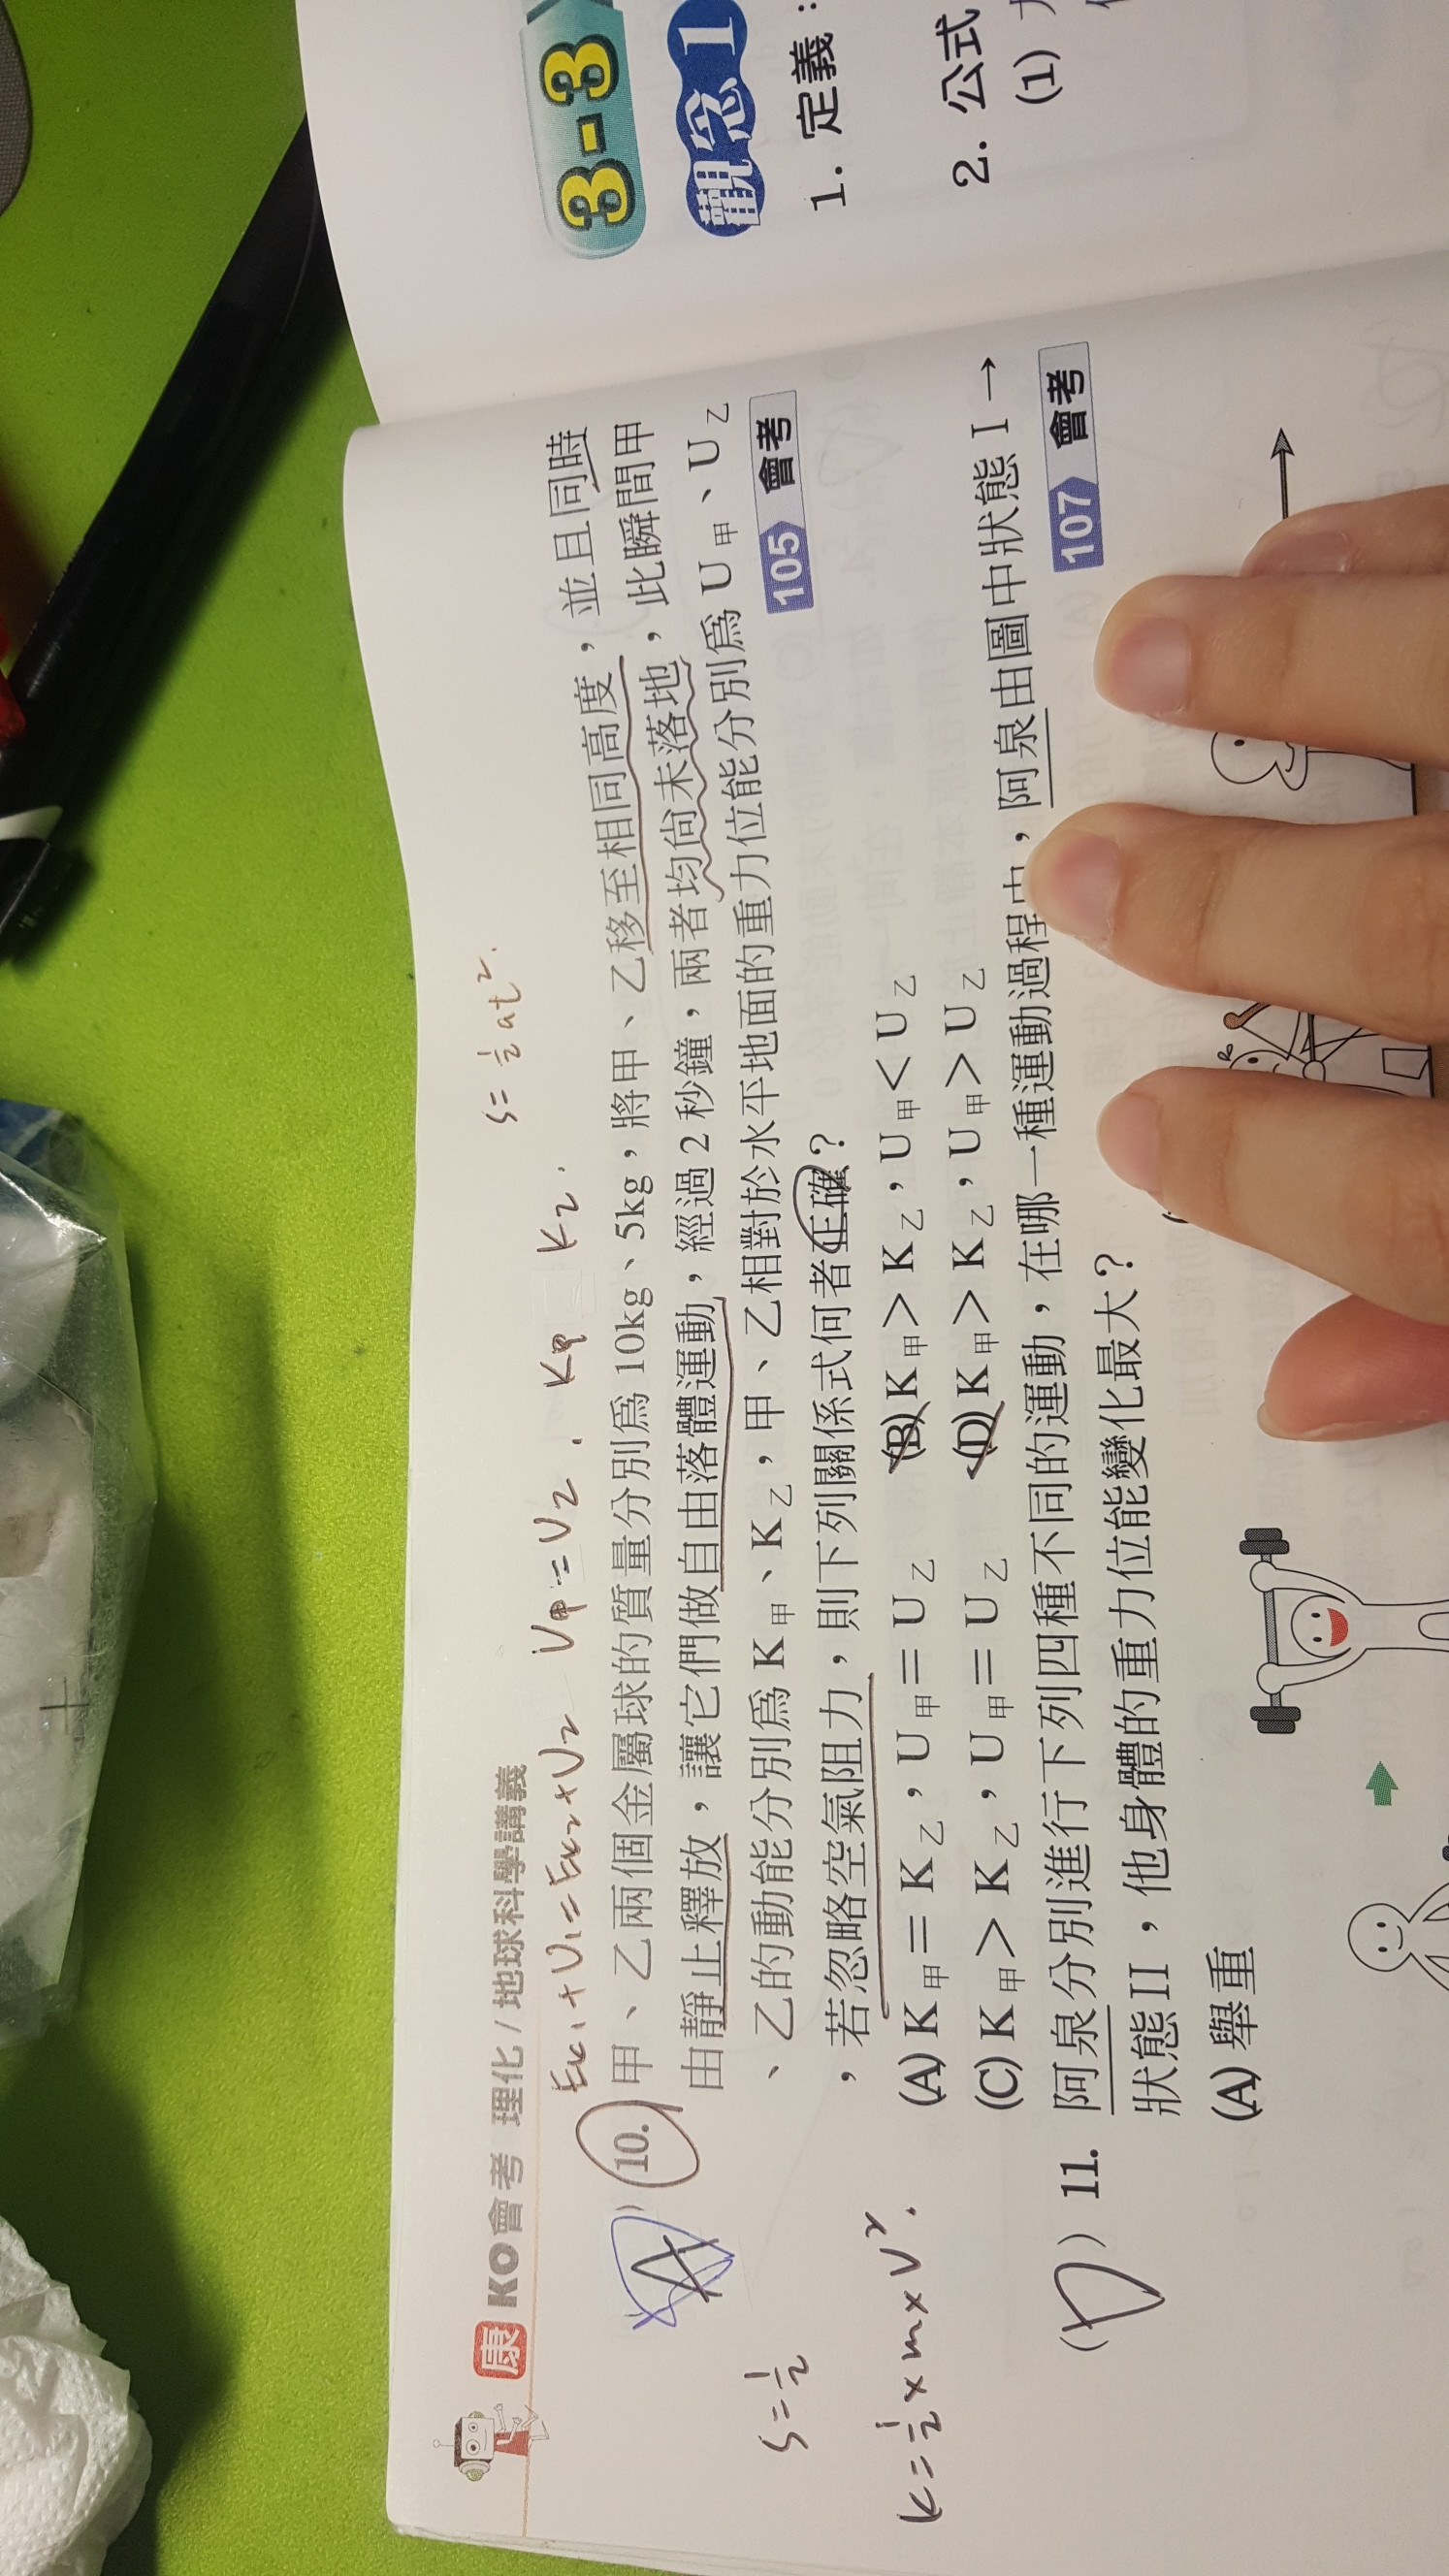 康 KO會考 理化 / 地球科學講義
Ek₁+U₁=Ek₂+U₂ U甲=U乙. K甲 K乙.
S=½at².
10. 甲、乙兩個金屬球的質量分別為 10kg、5kg，將甲、乙移至相同高度，並且同時
由靜止釋放，讓它們做自由落體運動，經過 2 秒鐘，兩者均尚未落地，此瞬間甲
、乙的動能分別為 K甲、K乙，甲、乙相對於水平地面的重力位能分別為 U甲、U乙
，若忽略空氣阻力，則下列關係式何者正確？
105 會考
(A) K甲＝K乙，U甲＝U乙 (B) K甲＞K乙，U甲＜U乙
(C) K甲＞K乙，U甲＝U乙 (D) K甲＞K乙，U甲＞U乙
S=½
K=½×m×V².
(D) 11. 阿泉分別進行下列四種不同的運動，在哪一種運動過程中，阿泉由圖中狀態 I →
狀態 II，他身體的重力位能變化最大？
107 會考
(A) 舉重
3-3
觀念 1
1. 定義：
2. 公式
(1)